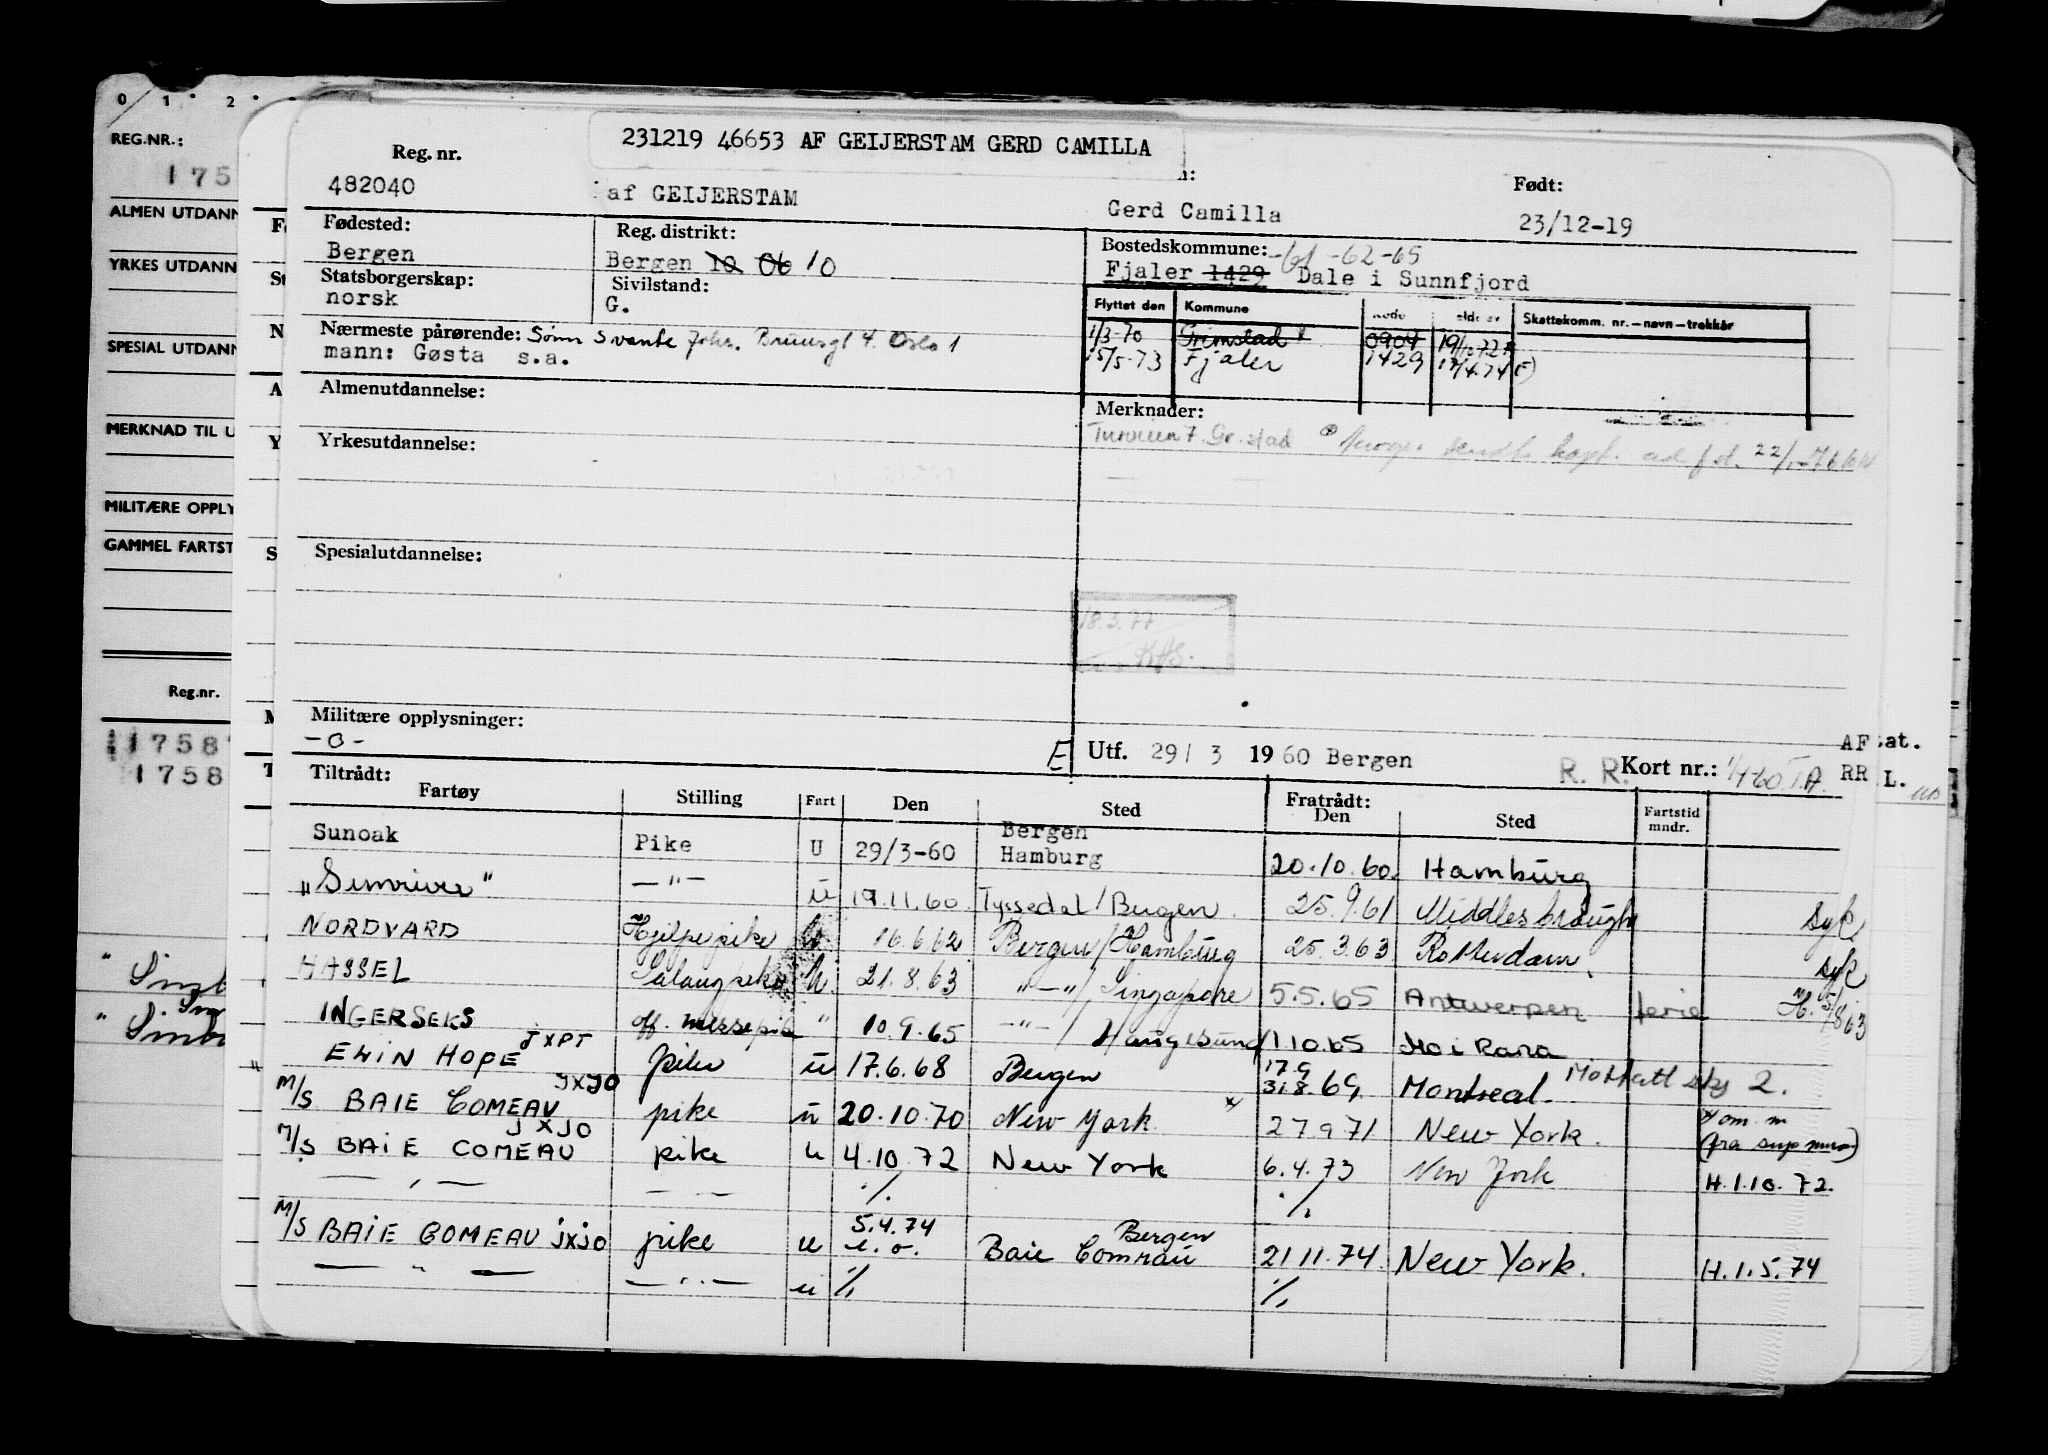 0 1 2
REG.NR.:
175
ALMEN UTDANN
YRKES UTDANN
SPESIAL UTDANN
MERKNAD TIL U
MILITÆRE OPPLY
GAMMEL FARTST
Reg.nr.
1758
1758
231219 46653 AF GEIJERSTAM GERD CAMILLA
Reg. nr.
482040
af GEIJERSTAM
Gerd Camilla
Født:
23/12-19
Fødested:
Bergen
Reg. distrikt:
Bergen 10 06 10
Bostedskommune: -61 -62-65
Fjaler 1429 Dale i Sunnfjord
Statsborgerskap:
norsk
Sivilstand:
G.
Flyttet den Kommune Skattekomm. nr.-navn-trekkår
1/3-70 Grimstad 0904
15/5-73 Fjaler 1429
Nærmeste pårørende: Sønn Svante Johs. Bruunsgt 4. Oslo 1
mann: Gøsta s.a.
Almenutdannelse:
Merknader:
Yrkesutdannelse:
Spesialutdannelse:
18.3.77
Militære opplysninger:
-0-
E Utf. 29/ 3 1960 Bergen
R. R. Kort nr.:
AF
RR L.
Tiltrådt: Fratrådt:
Fartøy Stilling Fart Den Sted Den Sted Fartstid mndr.
Sunoak Pike U 29/3-60 Bergen Hamburg 20.10.60. Hamburg
-"- u 19.11.60 Tyssedal/Bergen. 25.9.61 Middlesbrough syk
NORDVARD Hjelpepike u 16.6.62 Bergen/Hamburg 25.3.63 Rotterdam syk
HASSEL Salongpike u. 21.8.63 "-"/ Singapore 5.5.65 Antwerpen ferie
INGERSEKS off. messepike " 10.9.65 -"-/ Haugesund 11.10.65 Mo i Rana
ELIN HOPE JXPT pike u 17.6.68 Bergen 17.9 31.8.69. Montreal. 2.
M/S BAIE COMEAU JXJO pike u 20.10.70 New York x 27.9.71 New York.
M/S BAIE COMEAU JXJO pike u 4.10.72 New York 6.4.73 New York H.1.10.72.
-"- -"- ./. ./.
M/S BAIE COMEAU JXJO pike u 5.4.74 Bergen Baie Comeau 21.11.74. New York. H.1.5.74
-"- -"- u ./. ./.